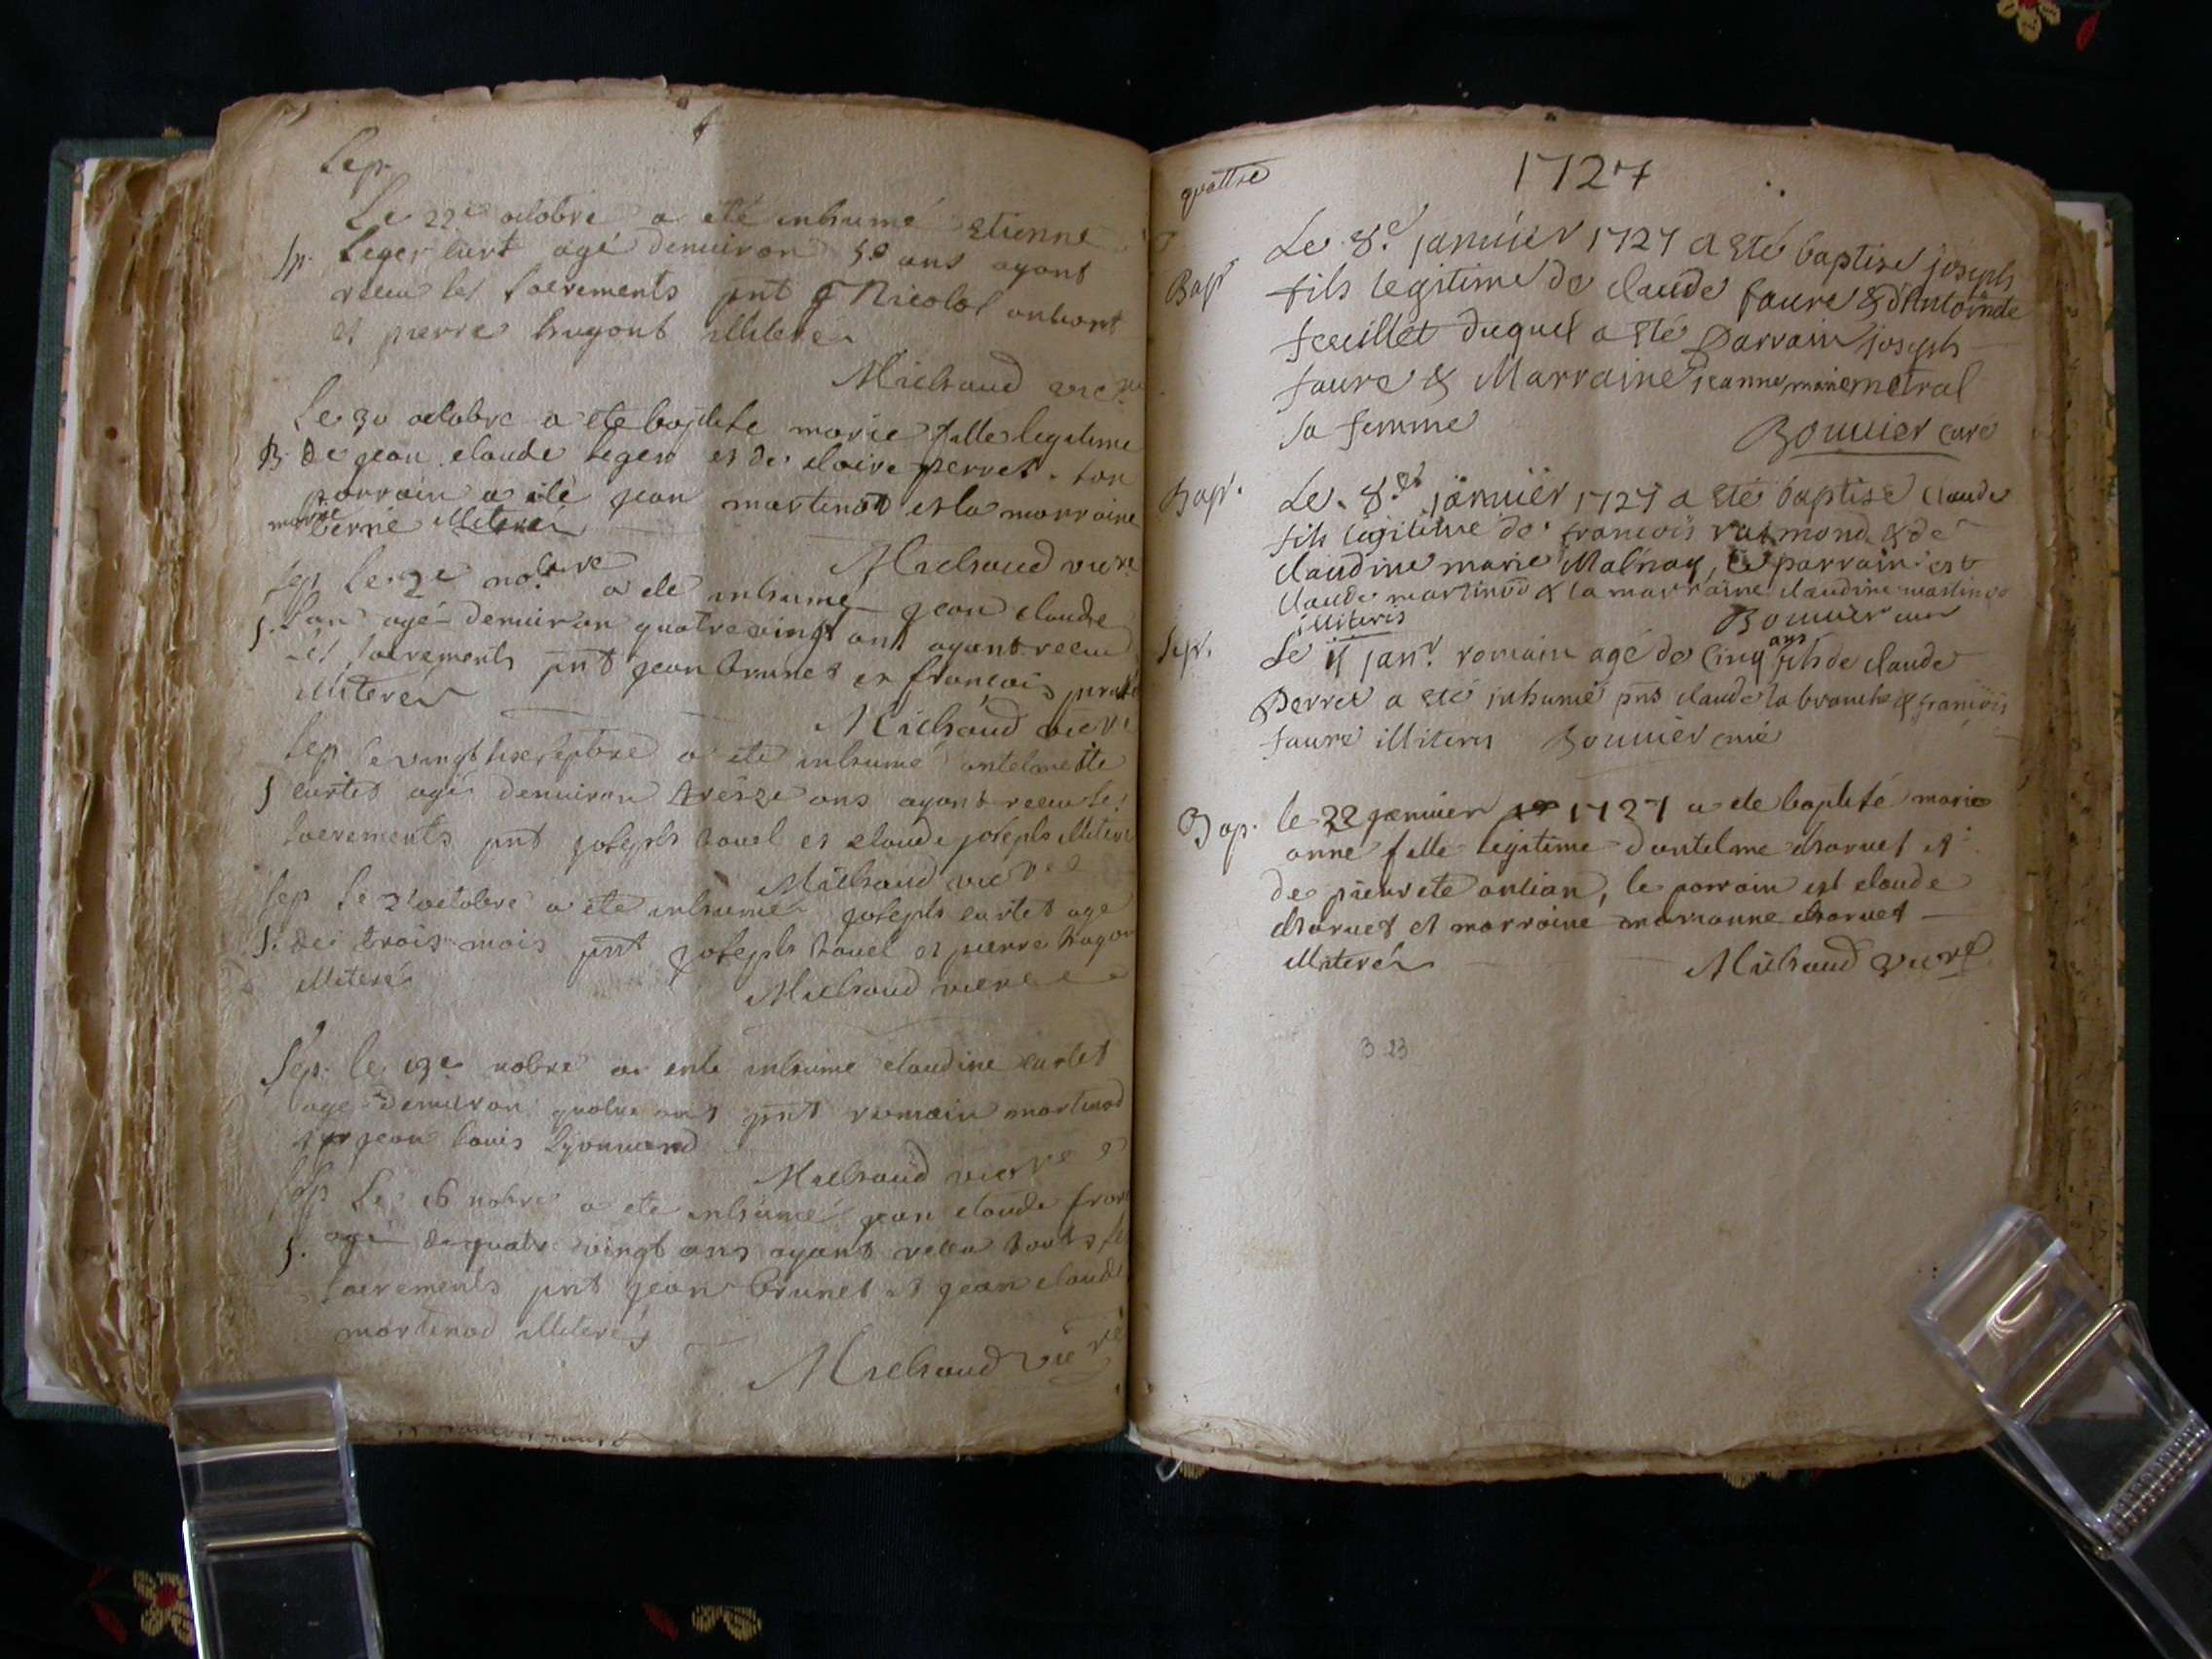 Sep.
Le 22e octobre a eté inhumé Etienne
Sp. Leger curt agé denuiron 50 ans ayant
receu les sacrements pnt Nicolas
et pierre hugont illiteré
Michaud vicre
Le 30 octobre a ete baptise marie fille legitime
B. De jean claude leger et de claire perret. son
parrain a eté jean martinod et la marraine
marie berne illiteréz
Michaud vicre
Sep Le 2e nobre a ete inhumé jean claude
S. agé denuiron quatrevingt ans ayant receu
les sacrements pnt jean brunet et françois
illiterez
Michaud vicre
Sep Le vingt septbre a ete inhumé antelmette
S curtet agé denuiron treize ans ayant receu les
sacrements pnt joseph touel et claude joseph illiteré
Michaud vicre
Sep Le 2e octobre a ete inhumé joseph curtet age
S. de trois mois pnt joseph touel et pierre hugon
illiteré
Michaud vicre
Sep. le 19e nobre a ente inhume claudine curtet
age denuiron quatre ans pnt romain martinod
et jean louis Lyonnard
Michaud vicre
Sep Le 26 nobre a ete inhumé jean claude
S. agé de quatre vingt ans ayant receu touts les
sacrements pnt jean brunet et jean claude
martinod illiterez
Michaud vicre
quattre
1727
Bap Le 8e janvier 1727 a esté baptisé joseph
fils legitime de claude faure & d'Antoinette
feuillet duquel a esté parrain joseph
faure & Marraine jeanne marie metral
sa femme
Bouuier curé
Bap. Le. 8e janvier 1727 a esté baptisé claude
fils legitime de françois raimond & de
claudine marie Malnay, le parrain est
claude martinod & la marraine claudine martinod
illiteris Bouuier curé
Sep. Le 11 janr. romain agé de cinq ans fils de claude
Perret a esté inhumé pns claude la branche & françois
faure illiteris Bouuier curé
Bap. le 22 janvier 1727 a ete baptisé marie
anne fille legitime dantelme charuet et
de pierrete antian, le parrain est claude
charuet et marraine marianne charuet
illiteréz Michaud vicre
323